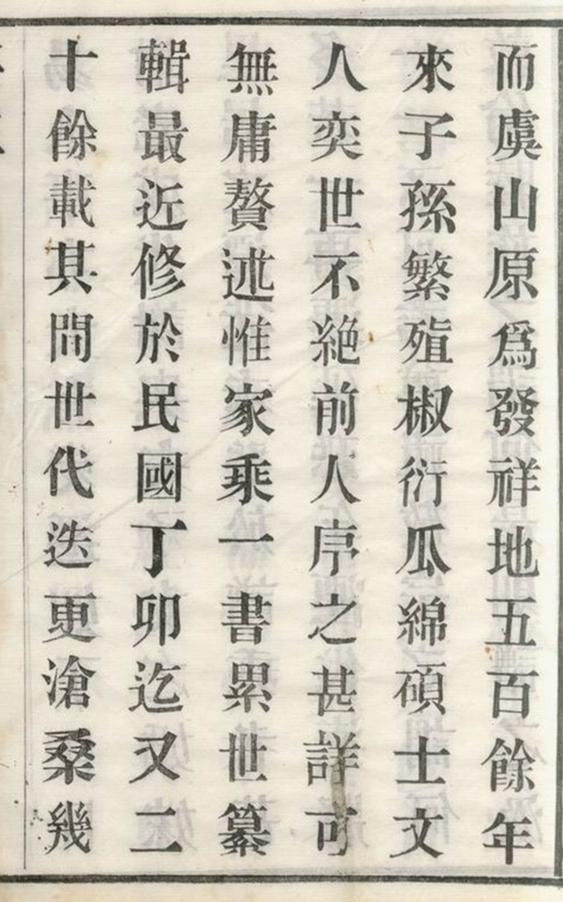 而虞山原爲發祥地五百餘年
來子孫繁殖椒衍瓜綿碩士文
人奕世不絶前人序之甚詳可
無庸贅述惟家乘一書累世纂
輯最近修於民國丁卯迄又二
十餘載其間世代迭更滄桑幾